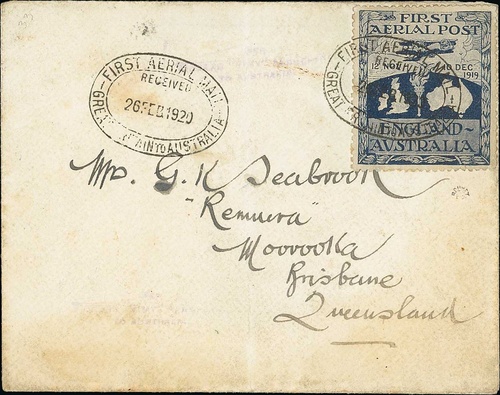 FIRST AERIAL MAIL
RECEIVED
26 FEB 1920
GREAT BRITAIN TO AUSTRALIA
FIRST
AERIAL POST
10 DEC
1919
ENGLAND-
AUSTRALIA
FIRST AERIAL MAIL
RECEIVED
GREAT
Mr. G. K Seabrook
"Remuera"
Moorooka
Brisbane
Queensland